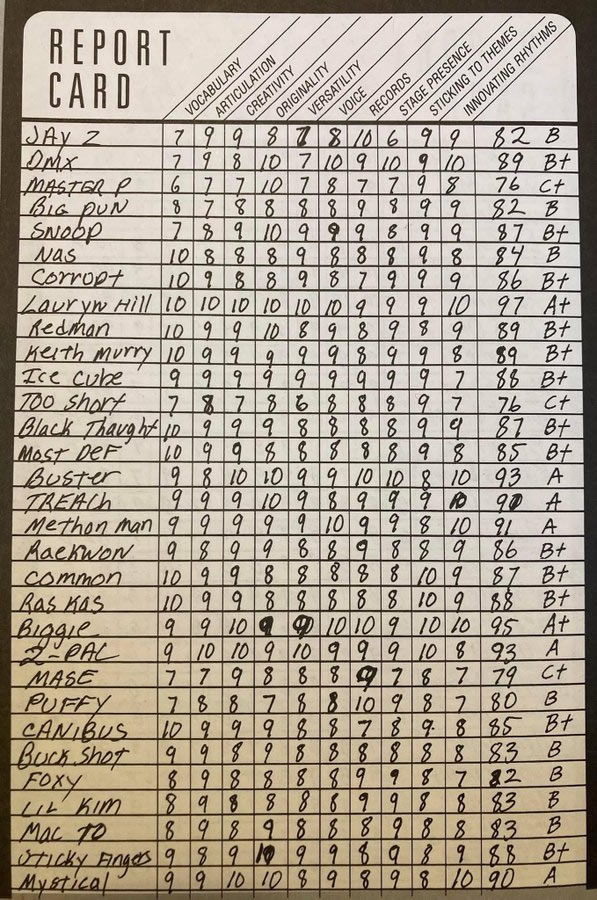 REPORT
CARD
VOCABULARY
ARTICULATION
CREATIVITY
ORIGINALITY
VERSATILITY
VOICE
RECORDS
STAGE PRESENCE
STICKING TO THEMES
INNOVATING RHYTHMS
JAY Z 7 9 9 8 7 8 10 6 9 9 82 B
DMX 7 9 8 10 7 10 9 10 9 10 89 B+
MASTER P 6 7 7 10 7 8 7 7 9 8 76 C+
BIG PUN 8 7 8 8 8 8 9 8 9 9 82 B
SNOOP 7 8 9 10 9 9 9 8 9 9 87 B+
Nas 10 8 8 8 9 8 8 8 9 8 84 B
Corrupt 10 9 8 8 9 8 7 9 9 9 86 B+
Lauryn Hill 10 10 10 10 10 10 9 9 9 10 97 A+
Redman 10 9 9 10 8 9 8 9 8 9 89 B+
Keith Murry 10 9 9 9 9 9 8 9 9 8 89 B+
Ice Cube 9 9 9 9 9 9 9 9 9 7 88 B+
Too Short 7 8 7 8 6 8 8 8 9 7 76 C+
Black Thaught 10 9 9 9 8 8 8 8 9 9 87 B+
Most Def 10 9 9 8 8 8 8 8 9 8 85 B+
Buster 9 8 10 10 9 9 10 10 8 10 93 A
TREACH 9 9 9 10 9 8 9 9 9 10 91 A
Methon man 9 9 9 9 9 10 9 9 8 10 91 A
Raekwon 9 8 9 9 8 8 9 8 8 9 86 B+
common 10 9 9 8 8 8 8 8 10 9 87 B+
Ras Kas 10 9 9 8 8 8 8 8 10 9 88 B+
Biggie 9 9 10 9 9 10 10 9 10 10 95 A+
2-PAC 9 10 10 9 10 9 9 9 10 8 93 A
MASE 7 7 9 8 8 8 9 7 8 7 79 C+
PUFFY 7 8 8 7 8 8 10 9 8 7 80 B
CANIBUS 10 9 9 9 8 8 7 8 9 8 85 B+
Buck Shot 9 9 8 9 8 8 8 8 8 8 83 B
FOXY 8 9 8 8 8 8 9 9 8 7 82 B
LIL KIM 8 9 8 8 8 8 9 9 8 8 83 B
Mac 10 8 9 8 9 8 8 8 9 8 8 83 B
Sticky Fingers 9 8 9 10 9 9 8 9 8 9 88 B+
Mystical 9 9 10 10 8 9 8 9 8 10 90 A